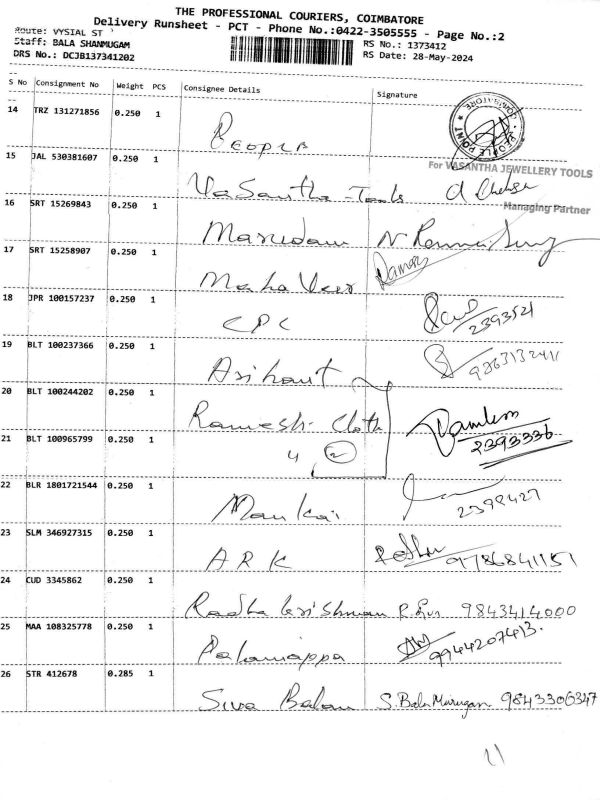 THE PROFESSIONAL COURIERS, COIMBATORE
Delivery Runsheet - PCT - Phone No.:0422-3505555 - Page No.:2
Route: VYSIAL ST
Staff: BALA SHANMUGAM RS No.: 1373412
DRS No.: DCJB137341202 RS Date: 28-May-2024
S No Consignment No Weight PCS Consignee Details Signature
14 TRZ 131271856 0.250 1 People
PEOPLE POINT * COIMBATORE *
15 JAL 530381607 0.250 1 Vasantha-Tools
For VASANTHA JEWELLERY TOOLS
Managing Partner
16 SRT 15269843 0.250 1 Marudam
17 SRT 15258907 0.250 1 Maha Veer
18 JPR 100157237 0.250 1 CPC 2393521
19 BLT 100237366 0.250 1 Arihant 9863132411
20 BLT 100244202 0.250 1 Ramesh Cloth
21 BLT 100965799 0.250 1 4 2 2393336
22 BLR 1801721544 0.250 1 2399427
23 SLM 346927315 0.250 1 ARK 9786841151
24 CUD 3345862 0.250 1 Radha krishnan 9843414000
25 MAA 108325778 0.250 1 Palaniappa 9944207413.
26 STR 412678 0.285 1 Siva Balan S. Bala Murugan 9843306347